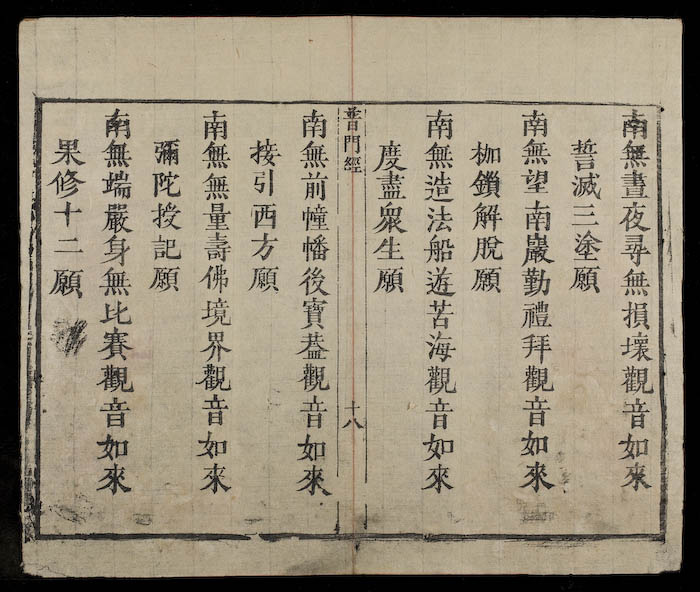 南無晝夜尋無損壞觀音如來
誓滅三塗願
南無望南巖勤禮拜觀音如來
枷鎖解脫願
南無造法船遊苦海觀音如來
度盡眾生願
普門經
十八
南無前幢幡後寶葢觀音如來
接引西方願
南無無量壽佛境界觀音如來
彌陀授記願
南無端嚴身無比賽觀音如來
果修十二願